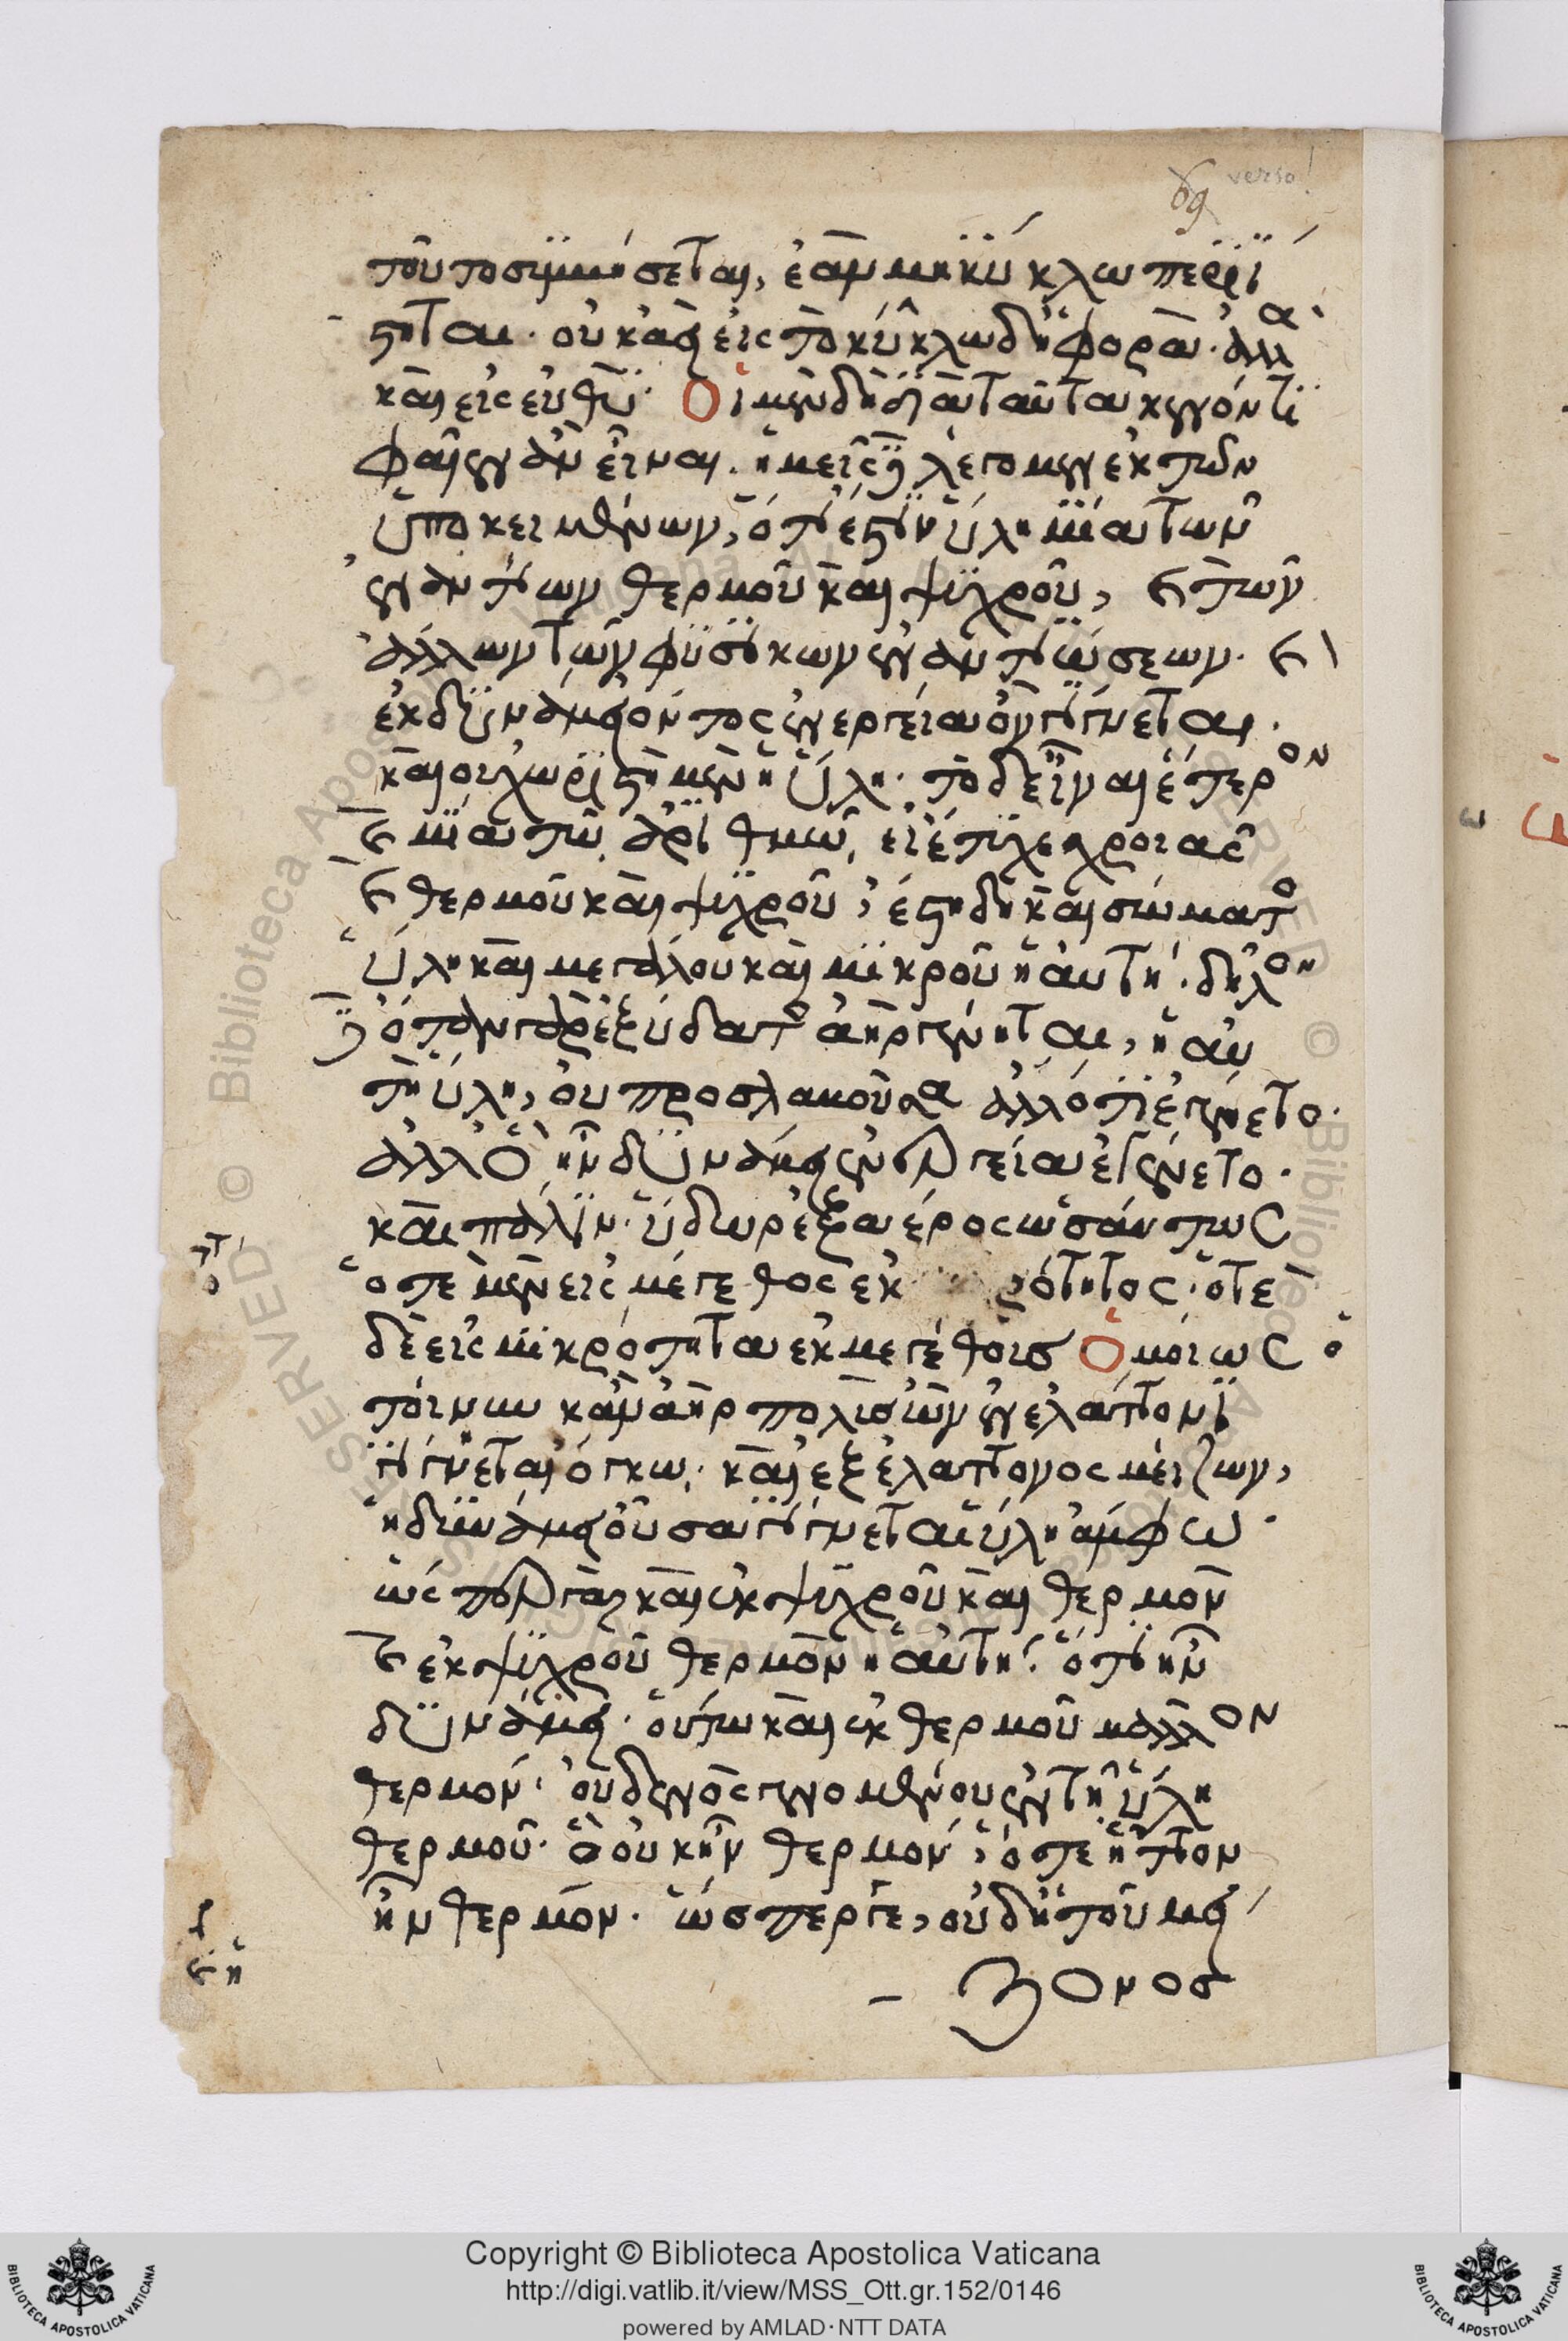 69 verso!
τοῦτο συμβήσεται, ἐὰν μὴ κύκλω περιί
στηται. οὐ καὶ εἰς τὸ κύκλω δ' ἡ φορά. ἀλλὰ
καὶ εἰς εὐθύ. Οἱ μὲν δὴ διὰ ταῦτα κενόν τι
φαῖεν ἂν εἶναι. ἡμεῖς δὲ λέγομεν ἐκ τῶν
ὑποκειμένων, ὅτι ἐστὶν ὕλη μία τῶν
ἐναντίων θερμοῦ καὶ ψυχροῦ, καὶ τῶν
ἄλλων τῶν φυσικῶν ἐναντιώσεων. καὶ
ἐκ δυνάμει ὄντος ἐνεργεία ὂν γίγνεται.
καὶ οὐ χωριστὴ μὲν ἡ ὕλη. τὸ δ' εἶναι ἕτερον
καὶ μία τῶ ἀριθμῶ, εἰ ἔτυχε χροιᾶς
καὶ θερμοῦ καὶ ψυχροῦ, ἔστι δὲ καὶ σώματος
ὕλη καὶ μεγάλου καὶ μικροῦ ἡ αὐτή. δῆλον
δέ ὅταν γὰρ ἐξ ὕδατος ἀὴρ γένηται, ἡ αὐ
τὴ ὕλη, οὐ προσλαβοῦσα ἄλλό τι ἐγένετο.
ἀλλ' ὃ ἦν δυνάμει ἐνεργεία ἐγένετο.
καὶ πάλιν ὕδωρ ἐξ ἀέρος ὡσαύτως
ὁτὲ μὲν εἰς μέγεθος ἐκ ρότητος. ὁτὲ
δὲ εἰς μικρότητα ἐκ μεγέθους Ὁμοίως
τοίνυν κἂν ἀὴρ πολὺς ὢν ἐν ἐλάττονι
γίγνεται ὄγκω. καὶ ἐξ ἐλάττονος μείζων,
ἡ δυνάμει οὖσα γίγνεται ὕλη ἄμφω.
ὥσπερ γὰρ καὶ ἐκ ψυχροῦ καὶ θερμὸν
καὶ ἐκ ψυχροῦ θερμὸν ἡ αὐτή. ὅτι ἦν
δυνάμει. οὕτω καὶ ἐκ θερμοῦ μᾶλλον
θερμόν. οὐδενὸς γενομένου ἐν τῆ ὕλη
θερμοῦ. ὃ οὐκ ἦν θερμόν, ὅτε ἧττον
ἦν θερμόν. ὥσπερ γε, οὐδ' ἡ τοῦ μεί
ζονος
Copyright © Biblioteca Apostolica Vaticana
http://digi.vatlib.it/view/MSS_Ott.gr.152/0146
powered by AMLAD · NTT DATA
BIBLIOTECA APOSTOLICA VATICANA
BIBLIOTECA APOSTOLICA VATICANA